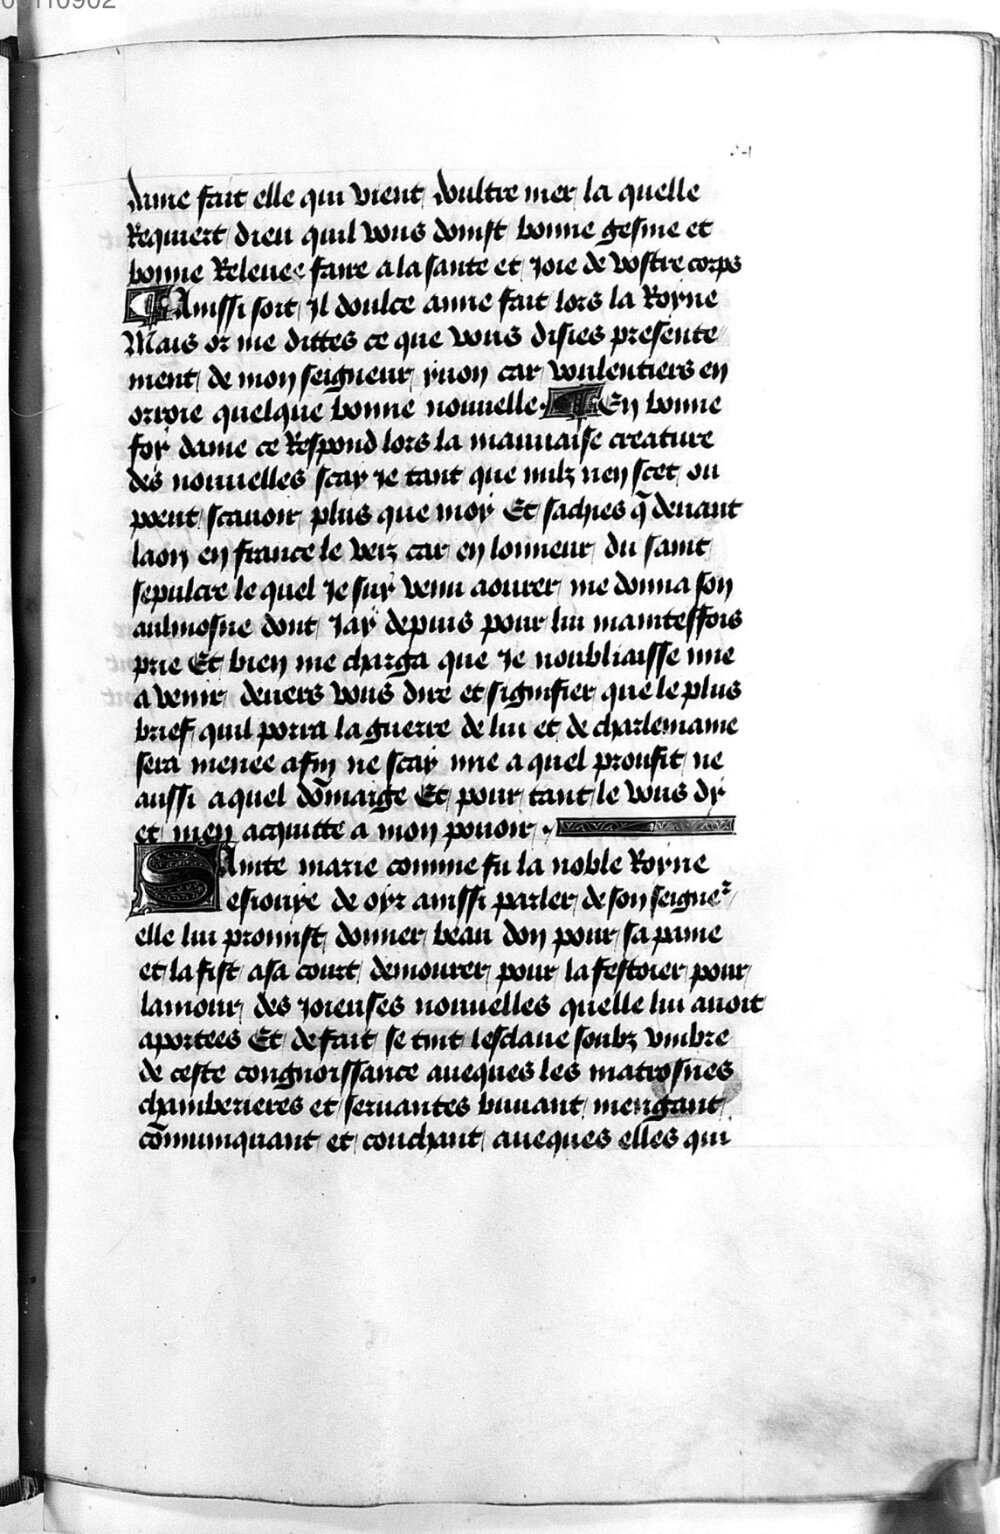 dame fait elle qui vient doultre mer la quelle
Requiert dieu quil vous doinst bonne gesine et
bonne Releuee faire a la sante et joie de vostre corps
¶ Ainssi soit Il doulce amie fait lors la Royne
Mais or me dittes ce que vous disies presente
ment de mon seigneur yuon car voulentiers en
orroie quelque bonne nouuelle. ¶ En bonne
foy dame ce Respond lors la mauuaise creature
des nouuelles scay je tant que nulz nen scet ou
poeut scauoir plus que moy Et sachies q̄ deuant
laon en france le veiz car en lonneur du saint
sepulcre le quel je suy venu aourer me donna son
aulmosne dont jay depuis pour lui maintesffois
prie Et bien me charga que je noubliaisse mie
a venir deuers vous dire et signifier que le plus
brief quil porra la guerre de lui et de charlemaine
sera menee a fin ne scay mie a quel proufit ne
aussi a quel dōmaige Et pour tant le vous dy
et men acquitte a mon pouoir.
Sainte marie comme fu la noble Royne
esiouye de oyr ainssi parler de son seigne²
elle lui promist donner beau don pour sa paine
et la fist a sa court demourer pour la festoier pour
lamour des joieuses nouuelles quelle lui auoit
aportees Et de fait se tint lesclaue soubz vmbre
de ceste congnoissance aueques les matrosnes
chamberieres et seruantes buuant mengant
cōmunquant et couchant aueques elles qui